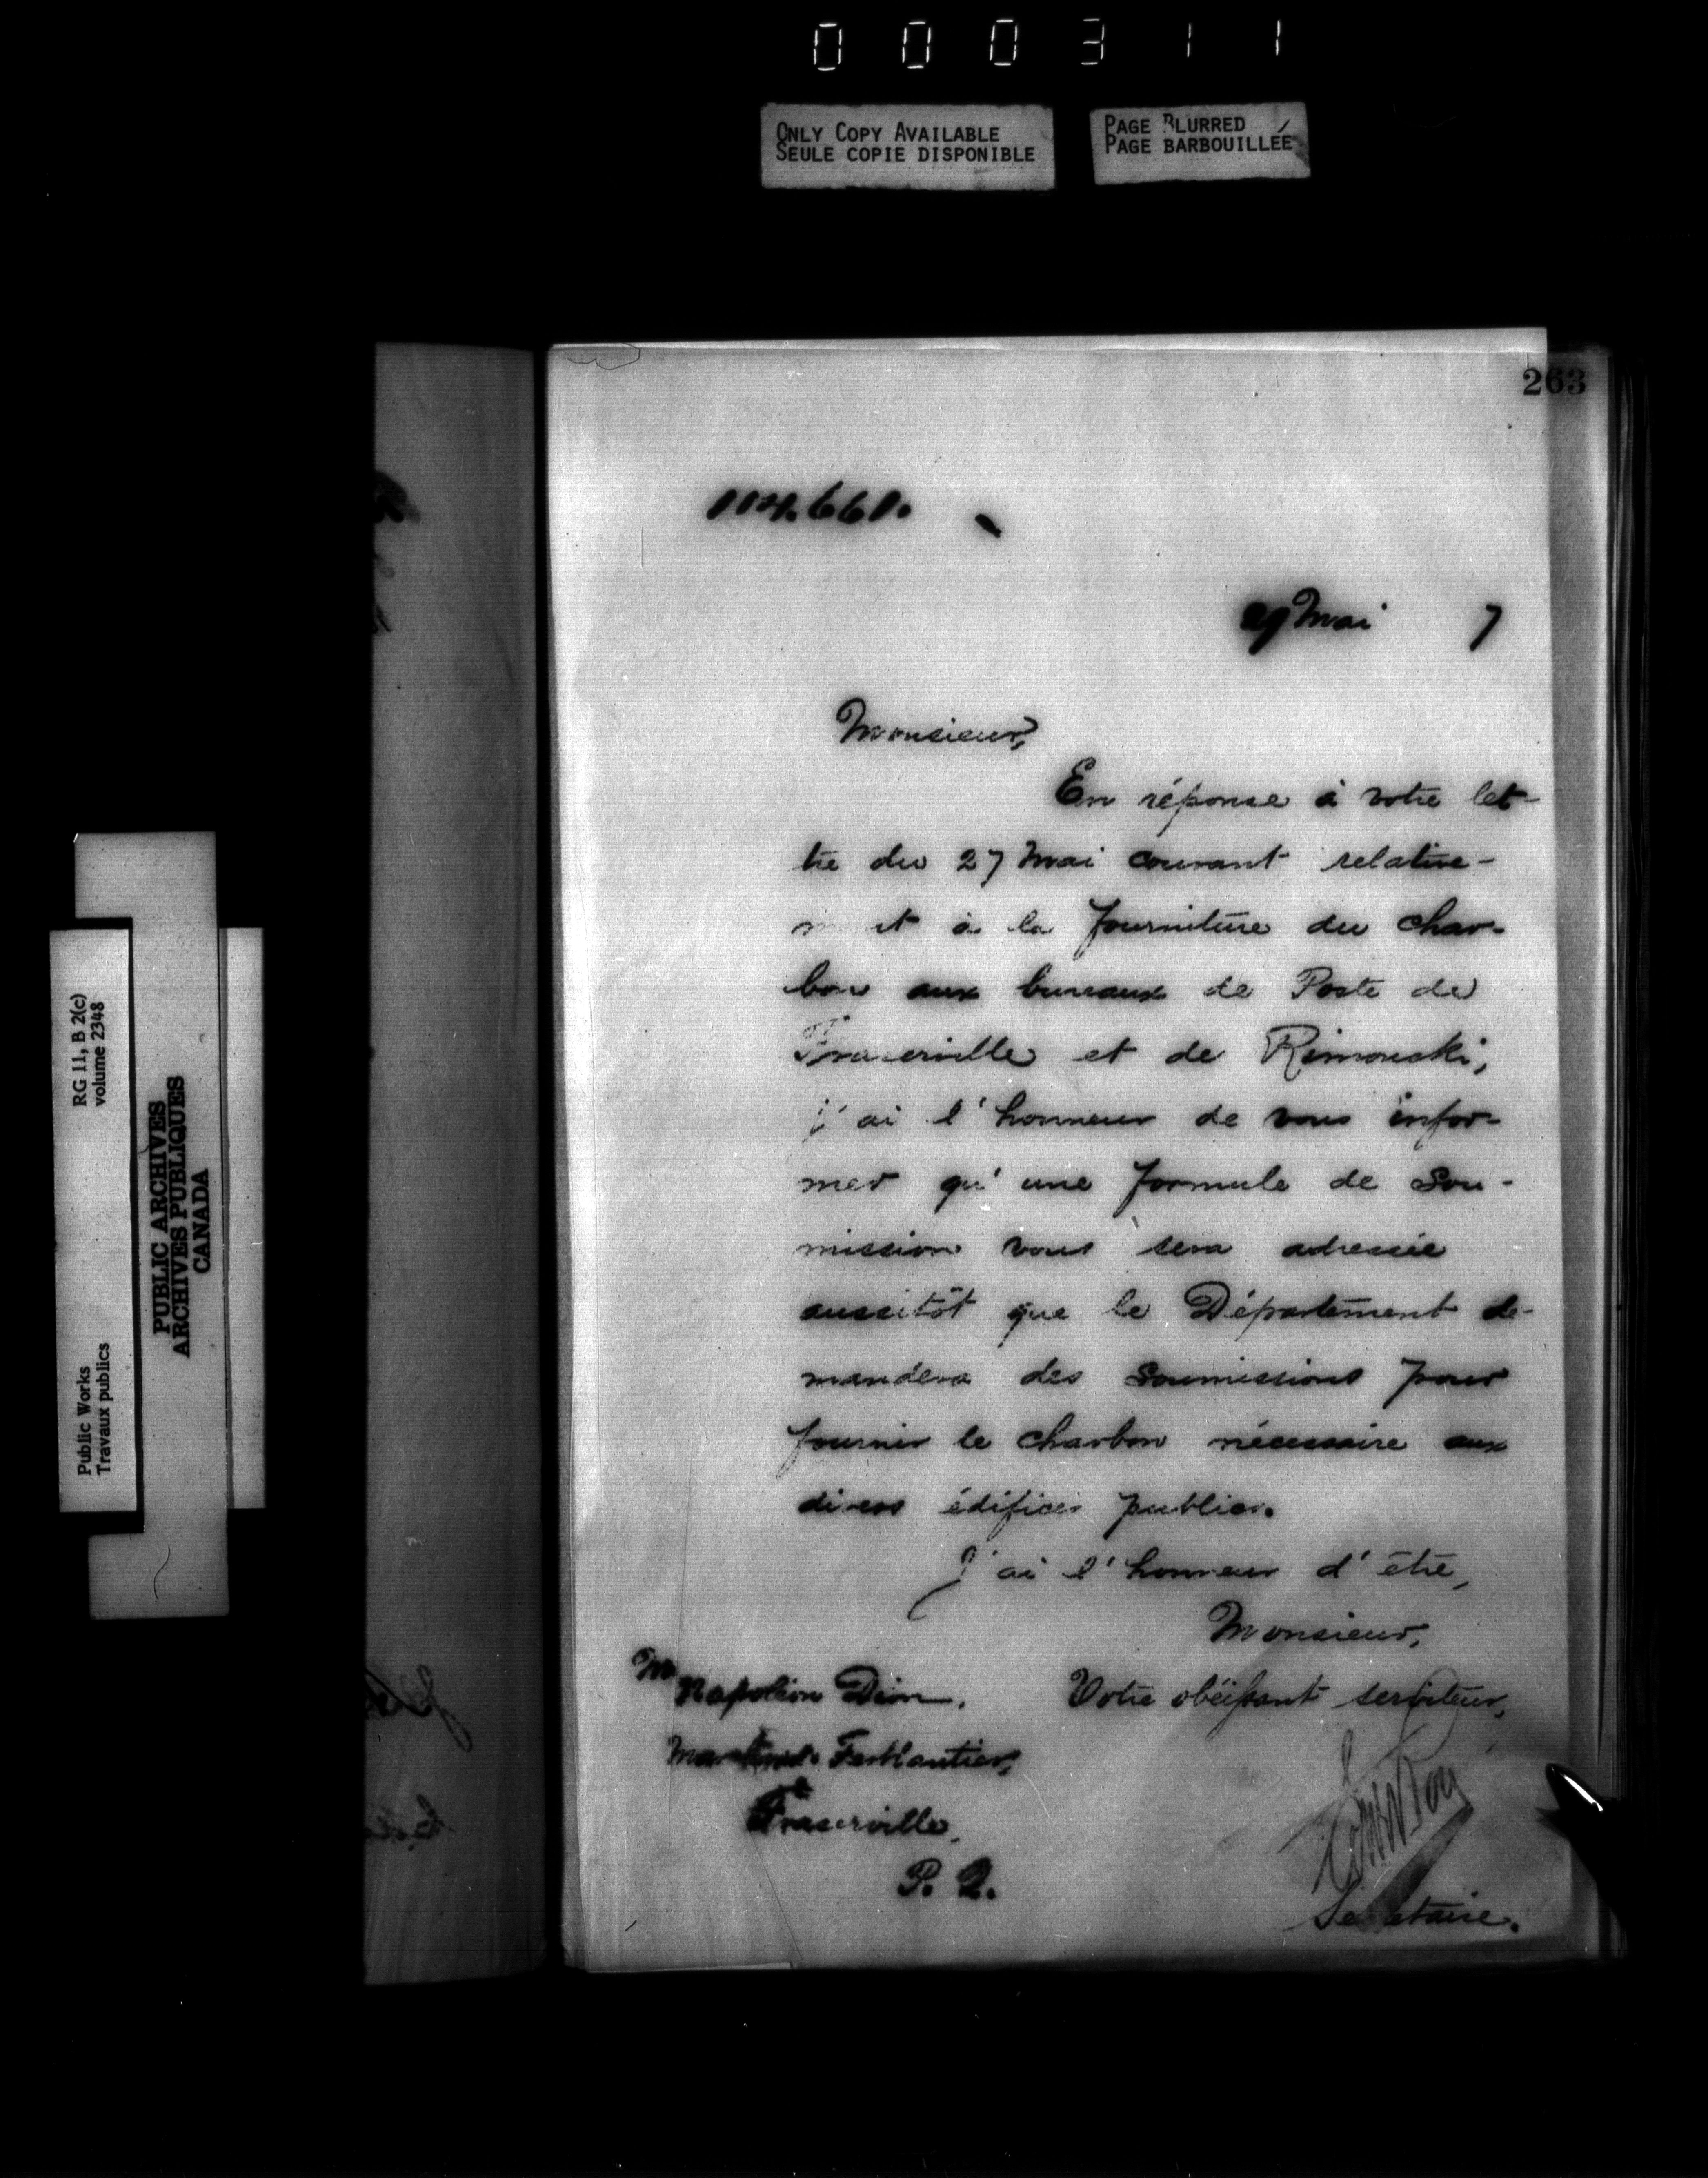 000311
ONLY COPY AVAILABLE
SEULE COPIE DISPONIBLE
PAGE BLURRED
PAGE BARBOUILLÉE
RG 11, B 2(c)
volume 2348
Public Works
Travaux publics
PUBLIC ARCHIVES
ARCHIVES PUBLIQUES
CANADA
263
114.661.
29 Mai 7
Monsieur,
En réponse à votre let-
tre du 27 Mai courant relative-
m et à la fourniture du char-
bon aux bureaux de Poste de
Fraserville et de Rimouski,
j'ai l'honneur de vous infor-
mer qu'une formule de sou-
mission vous sera adressée
aussitôt que le Département de-
mandera des soumissions pour
fournir le charbon nécessaire aux
divers édifices publics.
J'ai l'honneur d'être,
Monsieur,
Votre obéissant serviteur,
Mr Napoléon Dion,
Marchand Ferblantier,
Fraserville,
P. Q.
Secrétaire.